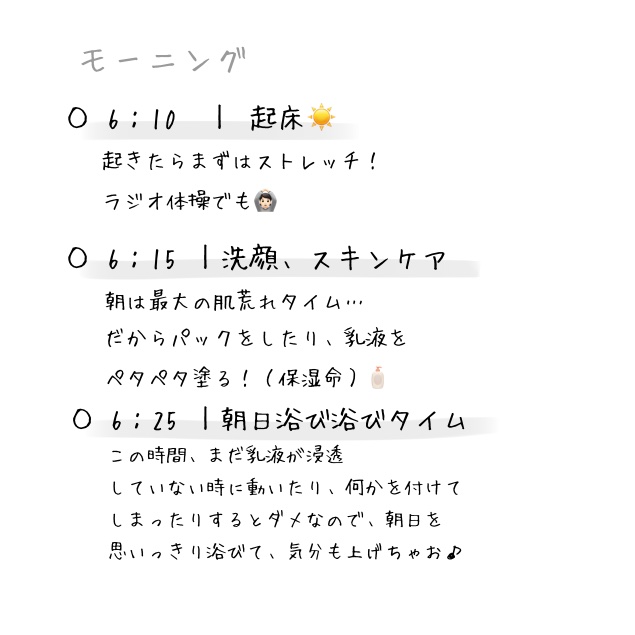 モーニング
○ 6:10 | 起床☀️
起きたらまずはストレッチ!
ラジオ体操でも🙆🏻
○ 6:15 | 洗顔、スキンケア
朝は最大の肌荒れタイム…
だからパックをしたり、乳液を
ペタペタ塗る!(保湿命)🧴
○ 6:25 | 朝日浴び浴びタイム
この時間、まだ乳液が浸透
していない時に動いたり、何かを付けて
しまったりするとダメなので、朝日を
思いっきり浴びて、気分も上げちゃお♪